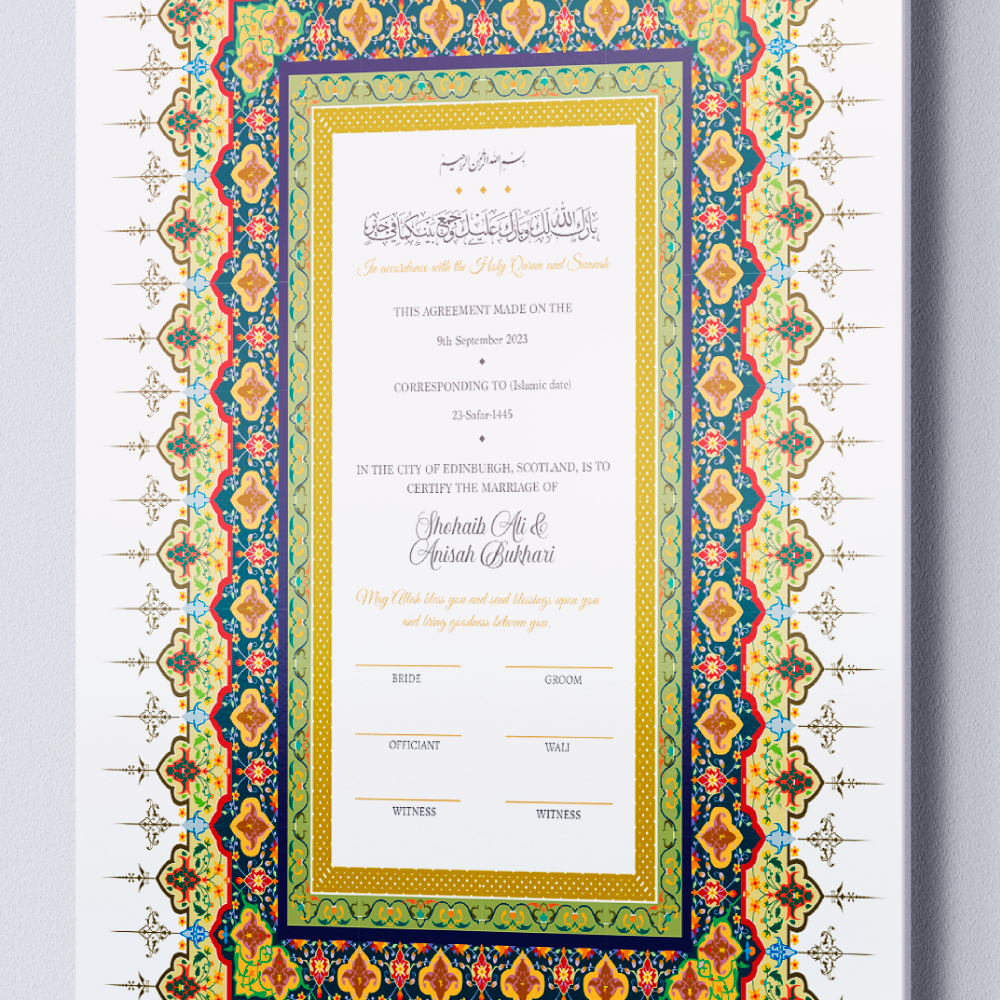 بسم الله الرحمن الرحيم
بارك الله لك وبارك عليك وجمع بينكما في خير
In accordance with the Holy Quran and Sunnah
THIS AGREEMENT MADE ON THE
9th September 2023
CORRESPONDING TO (Islamic date)
23-Safar-1445
IN THE CITY OF EDINBURGH, SCOTLAND, IS TO
CERTIFY THE MARRIAGE OF
Shohaib Ali &
Anisah Bukhari
May Allah bless you and send blessings upon you
and bring goodness between you.
BRIDE GROOM
OFFICIANT WALI
WITNESS WITNESS